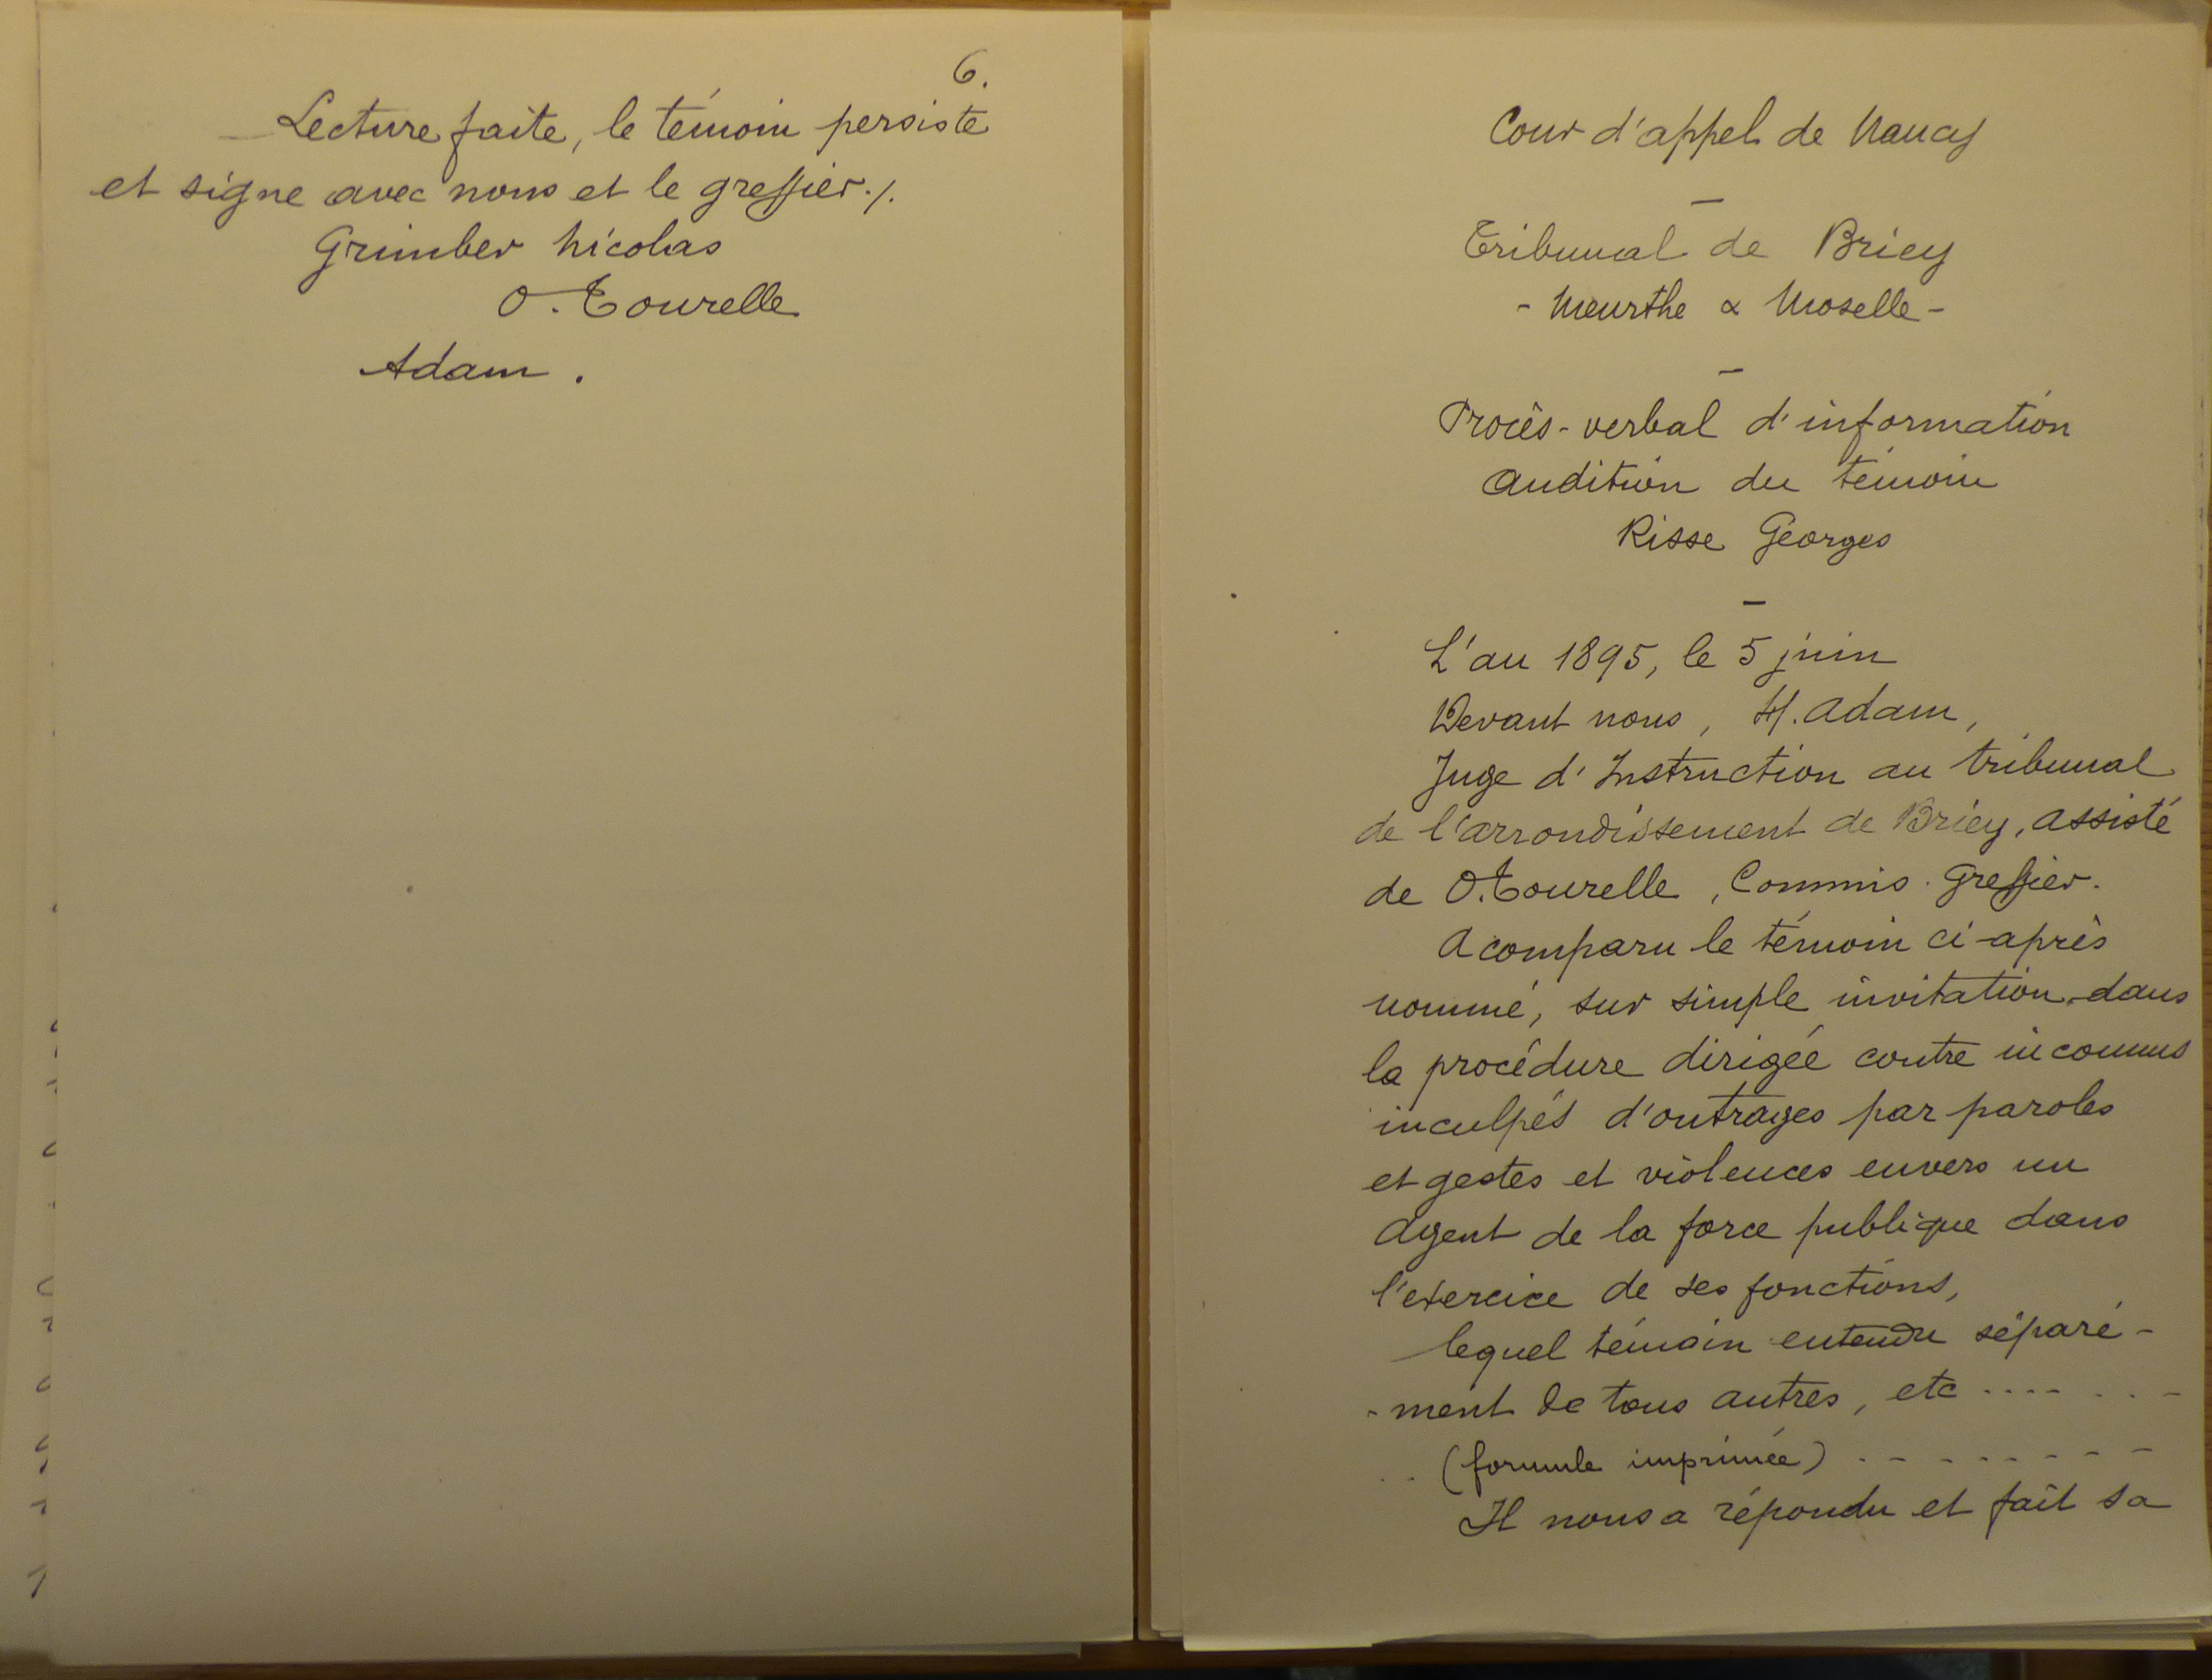 6.
Lecture faite, le témoin persiste
et signe avec nous et le greffier./.
Grimber Nicolas
O. Tourelle
Adam.
Cour d'appel de Nancy
—
Tribunal de Briey
- Meurthe & Moselle -
—
Procès-verbal d'information
Audition du témoin
Risse Georges
—
L'an 1895, le 5 juin
Devant nous, H. Adam,
Juge d'Instruction au tribunal
de l'arrondissement de Briey, assisté
de O. Tourelle, Commis-Greffier.
A comparu le témoin ci-après
nommé, sur simple invitation, dans
la procédure dirigée contre inconnus
inculpés d'outrages par paroles
et gestes et violences envers un
agent de la force publique dans
l'exercice de ses fonctions,
lequel témoin entendu séparé-
-ment de tous autres, etc .... . . -
. . (formule imprimée) . - - . - - - -
Il nous a répondu et fait sa